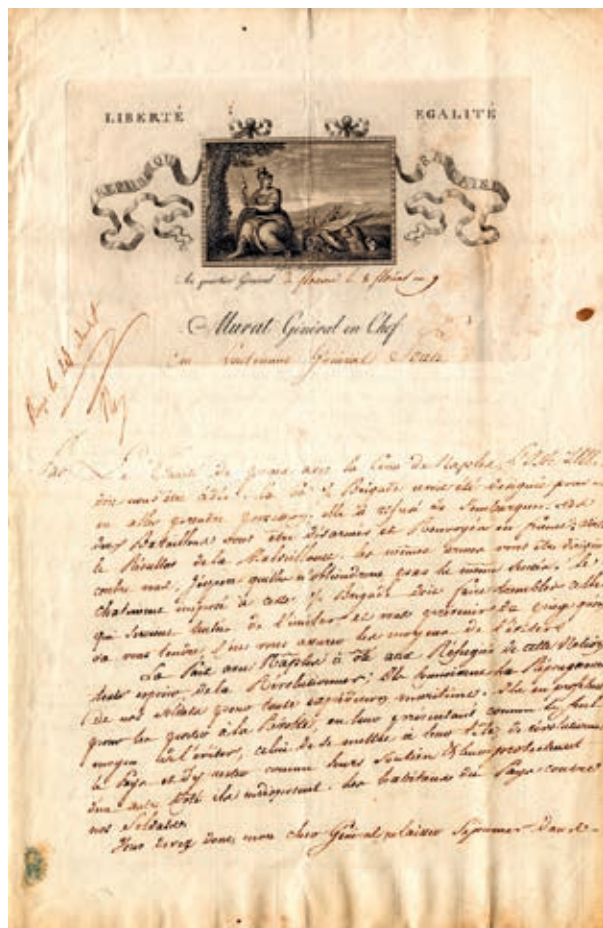 LIBERTÉ EGALITÉ
RÉPUBLIQUE FRANÇAISE
Au quartier Général de florence le 8 floréal an 9
Murat Général en Chef
au Lieutenant Général Soult
Par Le Traité de paix avec la Cour de Naples, L'Isle
d'Elbe nous être cédée, la 60e ½ Brigade avait été désignée pour
en aller prendre possession; elle a refusé de s'embarquer. Ses
deux Bataillons vont être désarmés et Renvoyés en france; voilà
le Résultat de la Malveillance. les mêmes armes vont être dirigées
contre vous. J'espère qu'elles n'obtiendront pas le même succès. le
châtiment imposé à cette ½ Brigade doit faire trembler celles
qui seraient tentées de l'imiter et vous prévenir du piège qu'on
va vous tendre, c'est vous assurer les moyens de l'éviter.
La Paix avec Naples a ôté aux Réfugiés de cette Nation
tout espoir de la Révolutionner; ils connaissent la Répugnance
de nos soldats pour toute expédition maritime. Ils en profitent
pour les porter à la Révolte, en leur présentant comme le seul
moyen de l'éviter, celui de se mettre à leur tête, de révolutionner
le Pays et d'y rester comme leurs soutien & leur protecteurs
d'un autre côté ils indisposent les habitans du Pays contre
nos Soldats.
Vous devez donc, mon cher Général, ne laisser séjourner dans le